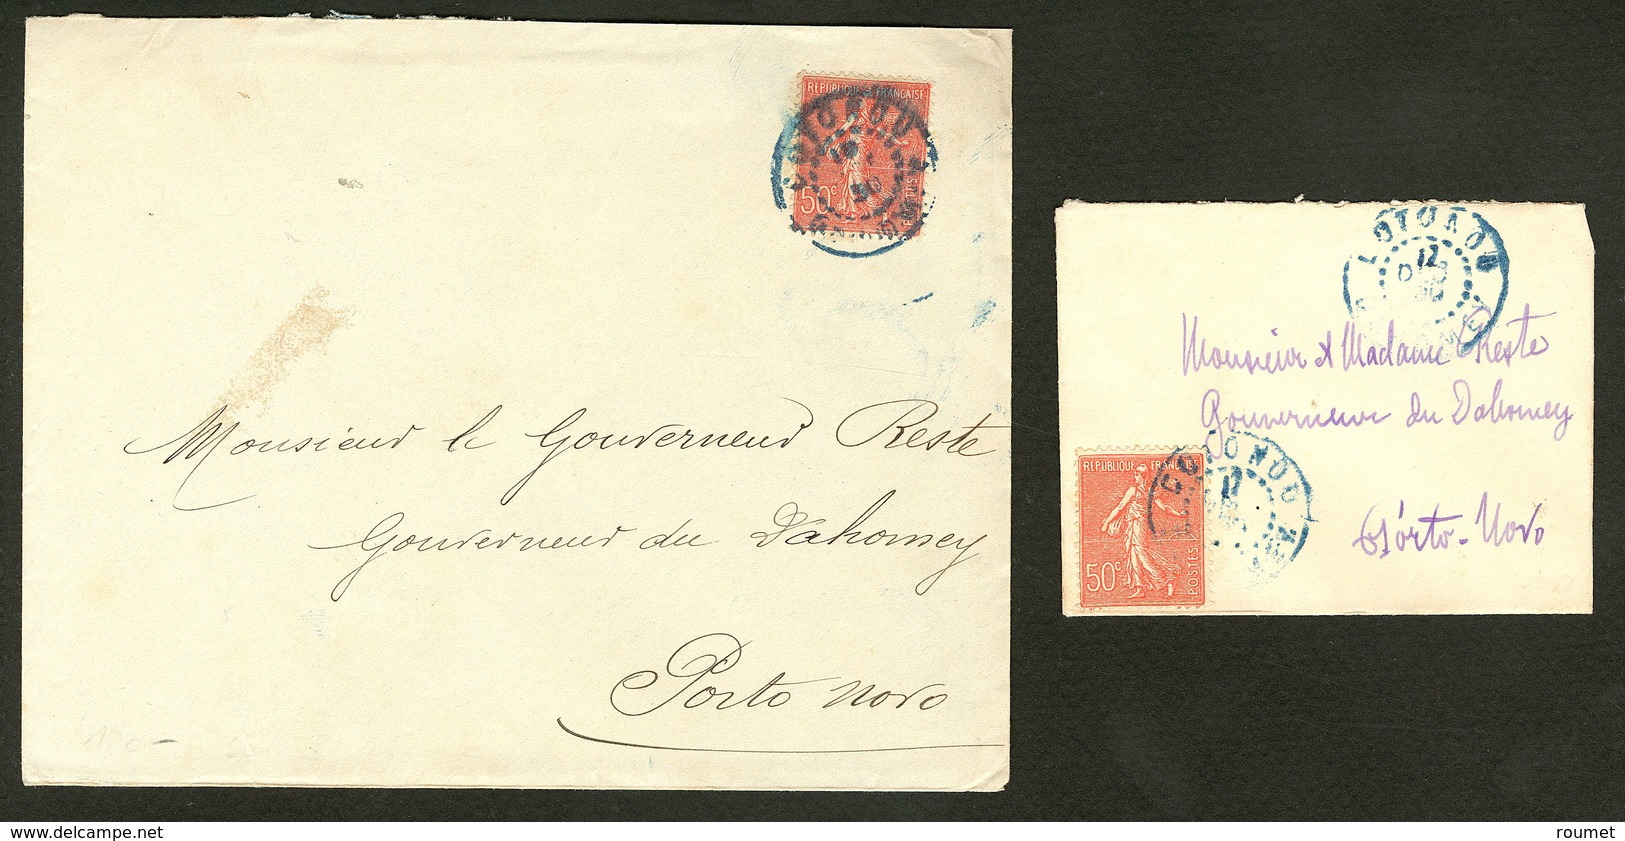 RÉPUBLIQUE FRANÇAISE
COTONOU
50c
POSTES
Monsieur le Gouverneur Reste
Gouverneur du Dahomey
Porto Novo
120-
COTONOU
12
Monsieur & Madame Reste
Gouverneur du Dahomey
RÉPUBLIQUE FRANÇAISE
COTONOU
12
50c
POSTES
Porto-Novo
www.delcampe.net
roumet